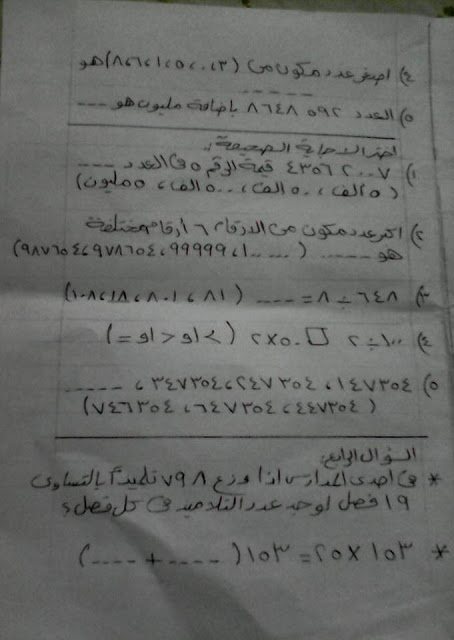 ٤) اصغر عدد مكون من (٣، ٠، ٥، ١، ٦، ٨) هو
-----
٥) العدد ٥٩٢ ٨٦٤٨ بإضافة مليون هو ---
اختر الاجابة الصحيحة:
١) ٤٣٥٦٢٠٠٧ قيمة الرقم ٥ فى العدد ---
(٥ الف، ٥٠ الف، ٥٠٠ الف، ٥ مليون)
٢) اكبر عدد مكون من الارقام ٦ أرقام مختلفة
هو ----- (١٠٠٠٠٠، ٩٩٩٩٩، ٩٧٨٦٥٤، ٩٨٧٦٥٤)
٣) ٦٤٨ ÷ ٨ = ---- (٨١، ٨٠١، ١٨، ١٠٨)
٤) ١٠٠ ÷ ٢ □ ٥٠ × ٢ (> او < او =)
٥) ١٤٧٣٥٤، ٢٤٧٣٥٤، ٣٤٧٣٥٤، -----
(٤٤٧٣٥٤، ٦٤٧٣٥٤، ٧٤٦٣٥٤)
السؤال الرابع:
* فى احدى المدارس اذا وزع ٧٩٨ تلميذاً بالتساوى
١٩ فصل اوجد عدد التلاميذ فى كل فصل؟
* ١٥٣ × ٢٥ = ١٥٣ (---- + ----)